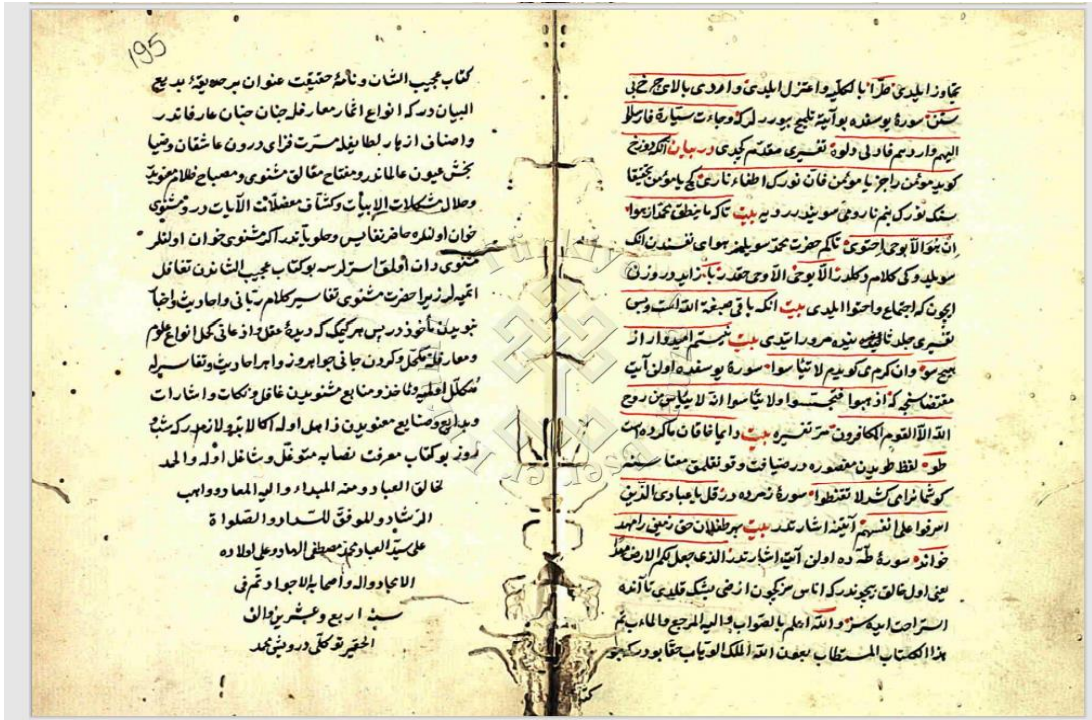 تجاوز ايلدى طرّا بالكليه واعتزل ايلدى وامدى بالاى چرخ بى
ستن سورۀ يوسفده بو آيته تلميح بيوررلر كه وجاءت سيّارة فارسلوا
اليهم واردهم فادلى دلوه تفسيرى مقدّم كچدى در بيان آنكه دوزخ
كويد مؤمن راجز يا مؤمن فان نورك اطفاء نارى كچ يا مؤمن تحقيقا
سنك نورك بنم نارومى سويندررو يه بيت تاكه ما ينطق محمد از هوا
ان هو الّا بوحى احتوى تاكم حضرت محمد سويلمز هواى نفسندن آنك
سويلدوكى كلام دكلدر الّا يوحى الّا وحى حقدر با زايد در وزن
ايچون كه اجتماع واحتوا ايلدى بيت آنكه باقى صبغة الله است وبس
تفسيرى جلد ثانيده مرور ايتدى بيت نيستم اميدوار از
هيچ سو وان كرم مى كويدم لا تيأسوا سورۀ يوسفده اولن آيت
مقتضاسنجه كه اذهبوا فتحسسوا ولا تيأسوا انه لا ييأس من روح
الله الّا القوم الكافرون مرّ تفسيره بيت دايما خاقان ما كرده است
طو لفظ طويدن مقصوره در ضيافت وقونقلق معناسنه
كوشمانراى كشد لا تقنطوا سورۀ زمرده در قل يا عبادى الذين
اسرفوا على انفسهم آيتنه اشارتدر بيت بهر طفلان حق زمين را مهد
خواند سورۀ طه ده اولن آيته اشارتدر الذى جعل لكم الارض مهدا
يعنى اول خالق بيچوندر كه اناس مزكچون ارضى بشك قلدى تا آنده
استراحت ايده سز والله اعلم بالصواب واليه المرجع والمآب تم
هذا الكتاب المستطاب بعون الله الملك الوهّاب حقا بودر كه بو
كتاب
195
كتاب عجيب الشان ونامۀ حقيقت عنوان بر حديقۀ بديع
البيان در كه انواع اثمار معارفله جنان جنان عارفاندر
واصناف ازهار لطايفله مسرّت فزاى درون عاشقان وضيا
بخش عيون عالماندر ومفتاح مقالق مثنوى ومصباح ظلام معنويدر
وحلال مشكلات الابيات وكشاف معضلات الآيات در ومثنوى
خوان اولنلره حاضر نفايس وحلويآتدر اكر مثنوى خوان اولنلر
مثنوى دان اولمق استرلرسه بو كتاب عجيب الشاندن تغافل
ايتميه لر زيرا حضرت مثنوى تفاسير كلام ربانى واحاديث واخبار
نبويدن مأخوذدر پس هر كيمك كه ديدۀ عقل واذعانى كحل انواع علوم
ومعارفله مكحل وكردن جانى جواهر زواهر احاديث وتفاسيرله
مكلّل اولميه ومآخذ ومنابع مثنويدن غافل ونكات واشارات
وبدايع وصنايع معنويدن ذاهل اوله اكا لابد ولازمدر كه شب و
روز بو كتاب معرفت نصابه متوغّل وشاغل اوله والحمد
لخالق العباد ومنه المبداء واليه المعاد وواهب
الرشاد والموفق للسداد والصلواة
على سيّد العباد محمد مصطفى الهاد وعلى اولاده
الامجاد واله واصحابه الاجواد تم فى
سنه اربع وعشرين والف
الحقير توكلى درويش محمد
Türkiye